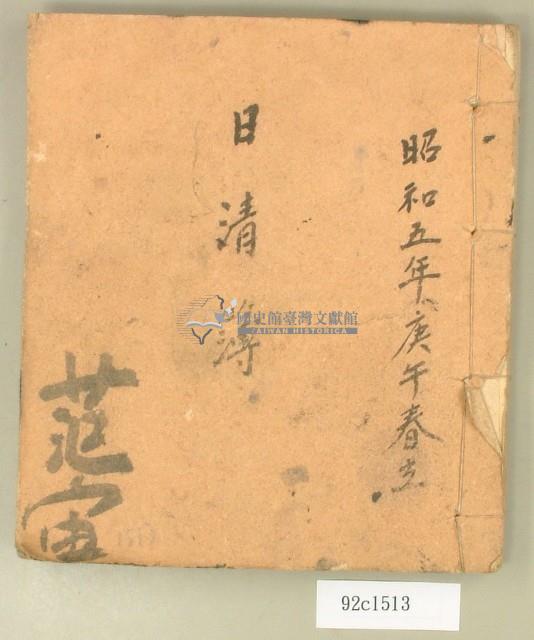 昭和五年庚午春立
日清簿
國史館臺灣文獻館
TAIWAN HISTORICA
范
92c1513